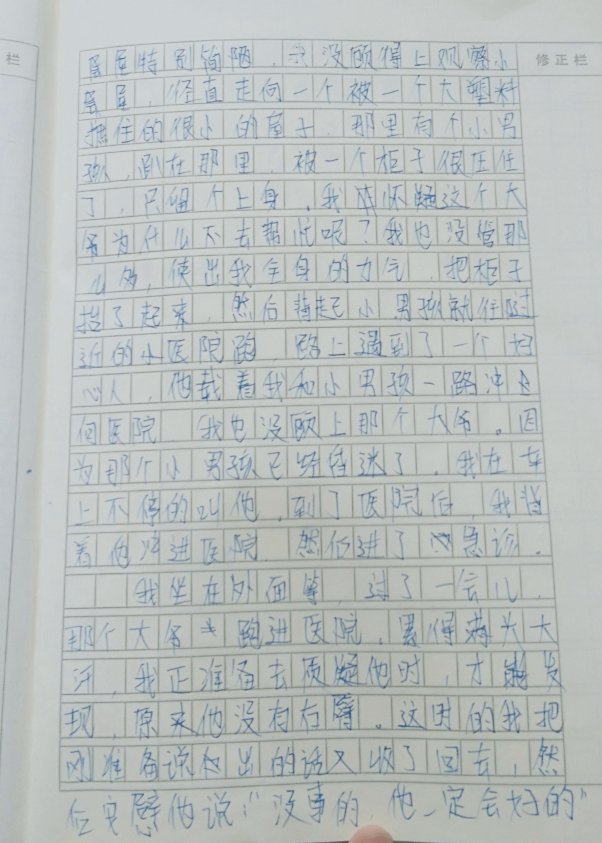 栏
修正栏
屋特别简陋，我没顾得上观察小
屋，径直走向一个被一个大塑料
摭住的很小的窗子，那里有个小男
孩，趴在那里，被一个柜子很压住
了，只留个上身，我本怀疑这个大
爷为什么不去帮忙呢？我也没管那
么多，使出我全身的力气，把柜子
抬了起来，然后背起小男孩就往附
近的小医院跑，路上遇到了一个好
心人，他载着我和小男孩一路冲
向医院，我也没顾上那个大爷。因
为那个小男孩已经昏迷了。我在车
上不停的叫他，到了医院后，我背
着他冲进医院，然后进了急诊。
我坐在外面等，过了一会儿，
那个大爷跑进医院，累得满头大
汗，我正准备去质疑他时，才发
现，原来他没有右臂。这时的我把
刚准备说出的话又收了回去，然
后安慰他说：“没事的，他一定会好的”